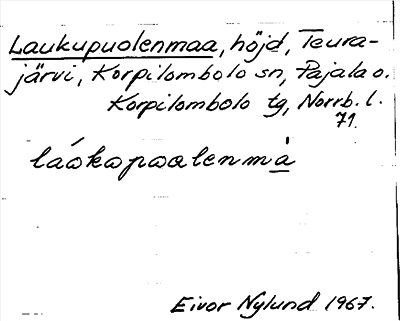 Laukupuolenmaa, höjd, Teura-
järvi, Korpilombolo sn, Pajala o.
Korpilombolo tg, Norrb. l.
71.
láokopoalenmà
Eivor Nylund 1967.